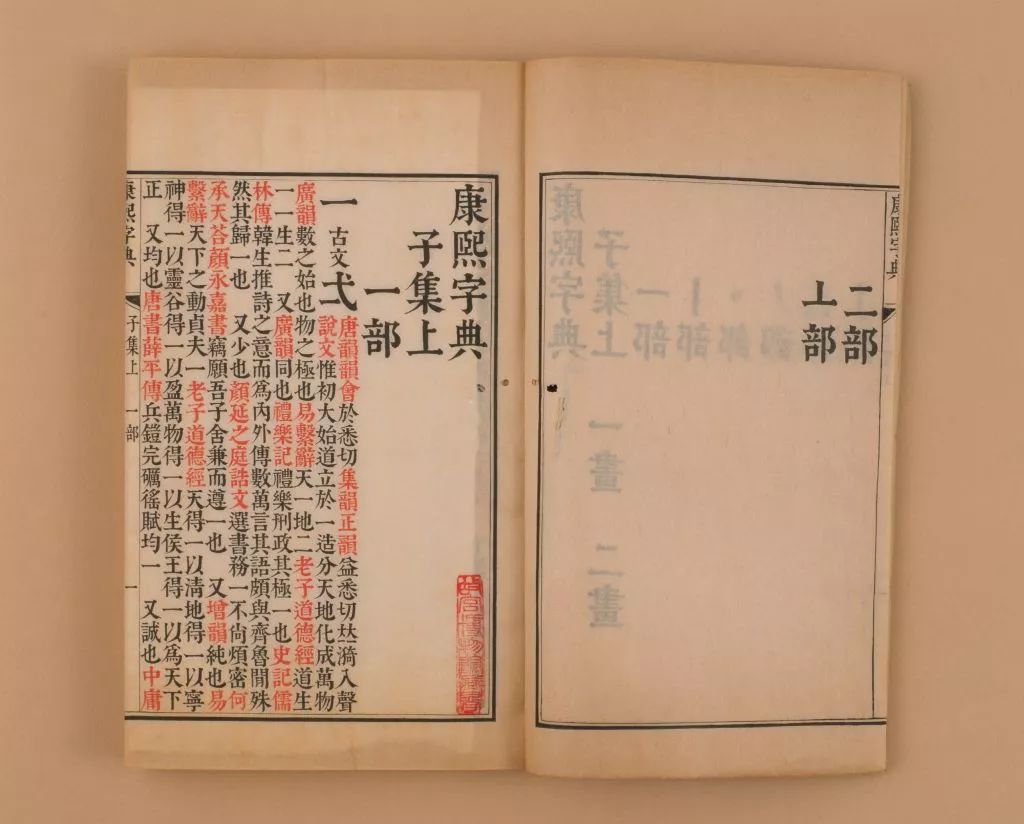 康熙字典
二部
亠部
康熙字典
子集上
一部
一 古文弌 唐韻韻會於悉切集韻正韻益悉切𡘋漪入聲
說文惟初大始道立於一造分天地化成萬物
廣韻數之始也物之極也易繫辭天一地二老子道德經道生
一一生二 又廣韻同也禮樂記禮樂刑政其極一也史記儒
林傳韓生推詩之意而爲內外傳數萬言其語頗與齊魯閒殊
然其歸一也 又少也顏延之庭誥文選書務一不尙煩密何
承天荅顏永嘉書竊願吾子舍兼而遵一也 又增韻純也易
繫辭天下之動貞夫一老子道德經天得一以淸地得一以寧
神得一以靈谷得一以盈萬物得一以生侯王得一以爲天下
正 又均也唐書薛平傳兵鎧完礪徭賦均一 又誠也中庸
康熙字典 子集上 一部 一